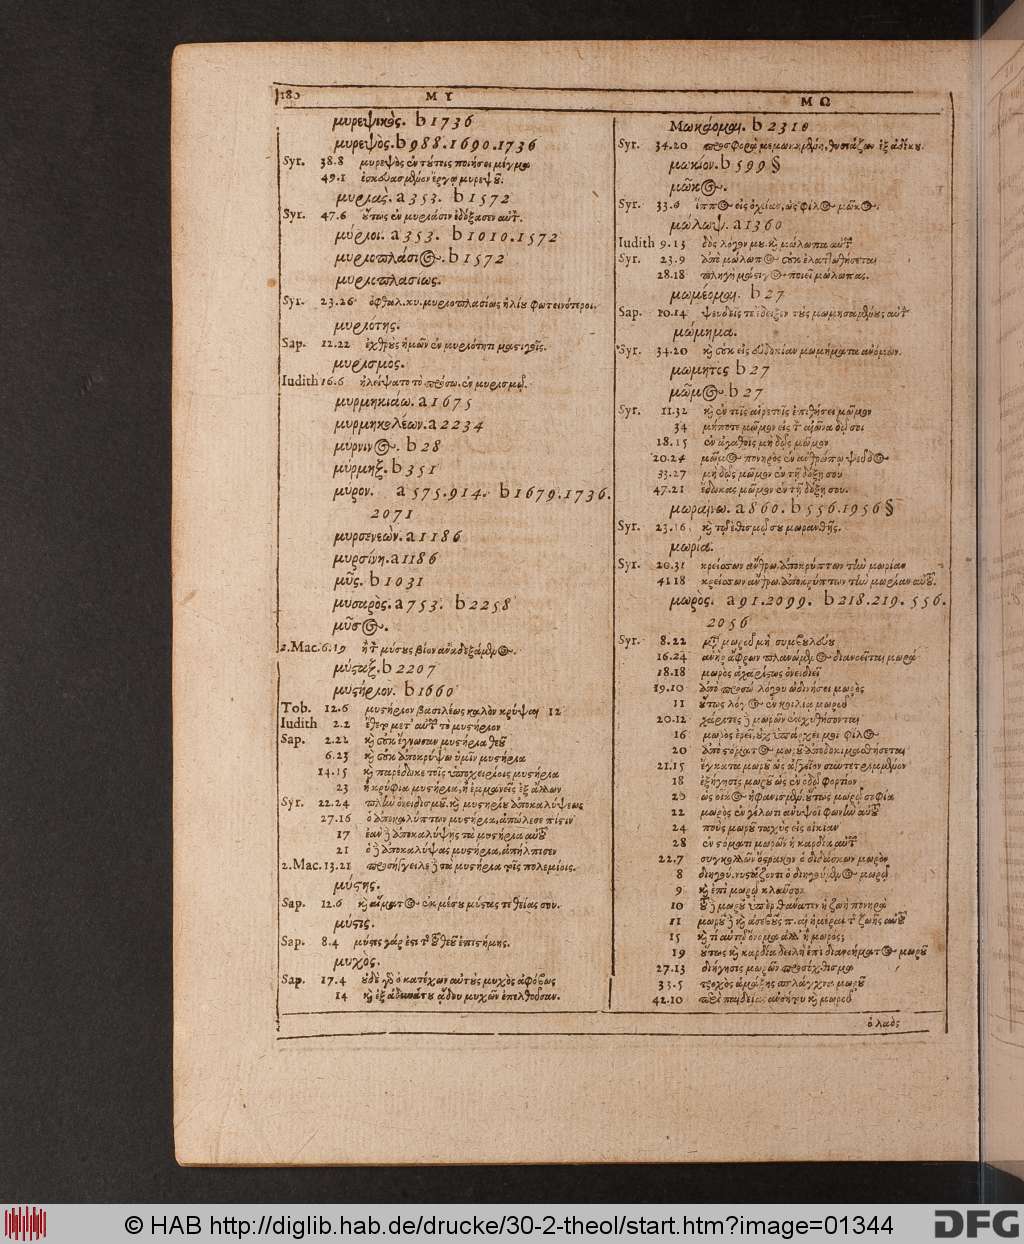 180 ΜΥ ΜΩ
μυρεψικὸς. b 1736
μυρεψὸς. b 988. 1690. 1736
Syr. 38.8 μυρεψὸς ἐν τύτοις ποιήσει μίγμα
49.1 ἐσκευασμένον ἔργῳ μυρεψοῦ.
μυριὰς. a 353. b 1572
Syr. 47.6 οὕτως ἐν μυριάσιν ἐδόξασεν αὐτ.
μύριοι. a 353. b 1010. 1572
μυριοπλάσιος. b 1572
μυριοπλασίως.
Syr. 23.26 ὀφθαλ. κυ. μυριοπλασίως ἡλίου φωτεινότεροι.
μυριότης.
Sap. 12.22 ἐχθροὺς ἡμῶν ἐν μυριότητι μαστιγοῖς.
μυρισμος.
Iudith 16.6 ἠλείψατο τὸ πρόσω. ἐν μυρισμῷ.
μυρμηκιαω. a 1675
μυρμηκολέων. a 2234
μύρνινος. b 28
μύρμηξ. b 351
μύρον. a 575. 914. b 1679. 1736.
2071
μυρσενεὼν. a 1186
μυρσίνη. a 1186
μῦς. b 1031
μυσαρὸς. a 753. b 2258
μῦσος.
2. Mac. 6.19 ἢ τ μύσους βίον ἀναδεξάμενος.
μύσταξ. b 2207
μυστήριον. b 1660
Tob. 12.6 μυστήριον βασιλέως καλὸν κρύψαι 12
Iudith 2.2 ἔθετο μετ' αὐτ τὸ μυστήριον
Sap. 2.22 καὶ οὐκ ἔγνωσαν μυστήρια θεοῦ
6.23 καὶ οὐκ ἀποκρύψω ὑμῖν μυστήρια
14.15 καὶ παρέδωκε τοῖς ὑποχειρίοις μυστήρια
23 ἢ κρύφια μυστήρια, ἢ ἐμμανεῖς ἐξ ἄλλων
Syr. 22.24 πλὴν ὀνειδισμοῦ. καὶ μυστηρίου ἀποκαλύψεως
27.16 ὁ ἀποκαλύπτων μυστήρια, ἀπώλεσε πίστιν
17 ἐὰν δὲ ἀποκαλύψῃς τὰ μυστήρια αὐτοῦ
21 ὁ δὲ ἀποκαλύψας μυστήρια, ἀπήλπισεν
2. Mac. 13.21 προσήγγειλε δὲ τὰ μυστήρια τοῖς πολεμίοις.
μύστης.
Sap. 12.6 καὶ αἵματος ἐκ μέσου μύστας τεθείας σου.
μύστις.
Sap. 8.4 μύστις γάρ ἐστι τ τοῦ θεοῦ ἐπιστήμης.
μυχος.
Sap. 17.4 οὐδὲ γὰρ ὁ κατέχων αὐτοὺς μυχὸς ἀφόβως
14 καὶ ἐξ ἀδυνάτου ᾅδου μυχῶν ἐπελθοῦσαν.
Μωκάομαι. b 2310
Syr. 34.20 προσφορὰ μεμωκημένη, θυσιάζων ἐξ ἀδίκου.
μωκίον. b 599 §
μῶκος.
Syr. 33.6 ἵππος εἰς ὀχείαν, ὡς φίλος μῶκος.
μώλωψ. a 1360
Iudith 9.13 δὸς λόγον μου καὶ μώλωπα αὐτ
Syr. 23.9 ἀπὸ μώλωπος οὐκ ἐλαττωθήσεται
28.18 πληγὴ μάστιγος ποιεῖ μώλωπας.
μωμέομαι. b 27
Sap. 10.14 ψευδεῖς τε ἔδειξεν τοὺς μωμησαμένους αὐτ
μώμημα.
Syr. 34.20 καὶ οὐκ εἰς εὐδοκίαν μωμήματα ἀνόμων.
μωμητος b 27
μῶμος. b 27
Syr. 11.32 καὶ ἐν τοῖς αἱρετοῖς ἐπιθήσει μῶμον
34 μήποτε μῶμον εἰς τ αἰῶνα δῷ σοι
18.15 ἐν ἀγαθοῖς μὴ δῷς μῶμον
20.24 μῶμος πονηρὸς ἐν ἀνθρώπῳ ψεῦδος
33.27 μὴ δῷς μῶμον ἐν τῇ δόξῃ σου
47.21 ἔδωκας μῶμον ἐν τῇ δόξῃ σου.
μωραίνω. a 860. b 556. 1956 §
Syr. 23.16 καὶ τῷ ἐθισμῷ σου μωρανθῇς.
μωρία.
Syr. 20.31 κρείσσων ἄνθρω. ἀποκρύπτων τὴν μωρίαν
41.18 κρείσσων ἄνθρω. ἀποκρύπτων τὴν μωρίαν αὐτοῦ.
μωρος. a 91. 2099. b 218. 219. 556.
2056
Syr. 8.22 μτ μωροῦ μὴ συμβουλεύου
16.24 ἀνὴρ ἄφρων πλανώμενος διανοεῖται μωρά
18.18 μωρὸς ἀχαρίστως ὀνειδιεῖ
19.10 ἀπὸ προσώ λόγου ὠδινήσει μωρὸς
11 οὕτως λόγος ἐν κοιλίᾳ μωροῦ
20.12 χάριτες δὲ μωρῶν ἐκχυθήσονται
16 μωρὸς ἐρεῖ, οὐχ ὑπάρχει μοι φίλος
20 ἀπὸ στόματος μωροῦ ἀποδοκιμασθήσεται
21.15 ἔγκατα μωροῦ ὡς ἀγγεῖον συντετριμμένον
18 ἐξήγησις μωροῦ ὡς ἐν ὁδῷ φορτίον
20 ὡς οἶκος ἠφανισμέν. οὕτως μωρῷ σοφία
22 μωρὸς ἐν γέλωτι ἀνυψοῖ φωνὴν αὐτοῦ
24 ποὺς μωροῦ ταχὺς εἰς οἰκίαν
28 ἐν στόματι μωρῶν ἡ καρδία αὐτ
22.7 συγκολλῶν ὄστρακον ὁ διδάσκων μωρὸν
8 διηγού. νυστάζοντι ὁ διηγούμενος μωρῷ
9 καὶ ἐπὶ μωρῷ κλαῦσον
10 τοῦ δὲ μωροῦ ὑπὲρ θάνατον ἡ ζωὴ πονηρὰ
11 μωροῦ δὲ καὶ ἀσεβοῦς π. αἱ ἡμέραι τ ζωῆς αὐτοῦ
15 καὶ τί αὐτῷ ὄνομα ἀλλ' ἢ μωρός;
19 οὕτως καὶ καρδία δειλὴ ἐπὶ διανοήματος μωροῦ
27.13 διήγησις μωρῶν προσόχθισμα
33.5 τροχὸς ἁμάξης σπλάγχνα μωροῦ
42.10 περὶ παιδείας ἀνοήτου καὶ μωροῦ
ὁ λαὸς
© HAB http://diglib.hab.de/drucke/30-2-theol/start.htm?image=01344
DFG